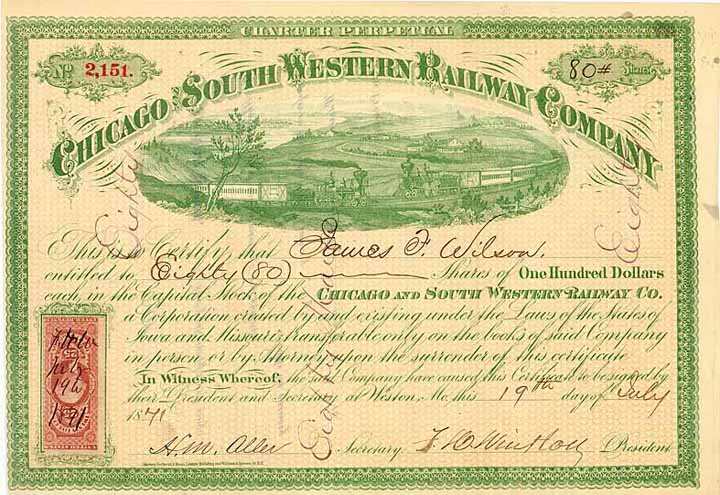 CHARTER PERPETUAL
No. 2,151.
80# Shares
CHICAGO AND SOUTH WESTERN RAILWAY COMPANY
This is to Certify that James F. Wilson.
entitled to Eighty (80) Shares of One Hundred Dollars
each, in the Capital Stock of the CHICAGO AND SOUTH WESTERN RAILWAY CO.
a Corporation created by and existing under the Laws of the States of
Iowa and Missouri, transferable only on the books of said Company
in person or by Attorney upon the surrender of this certificate
In Witness Whereof, the said Company have caused this Certificate to be signed by
their President and Secretary at Weston, Mo. this 19th day of July
1871
Secretary. President
Eighty
Eighty
Eighty
July
19th
1871